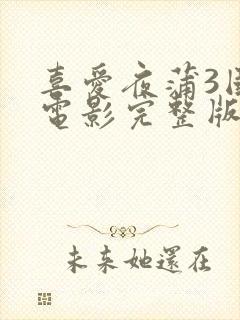 喜愛夜蒲3
電影完整版
未来她還在